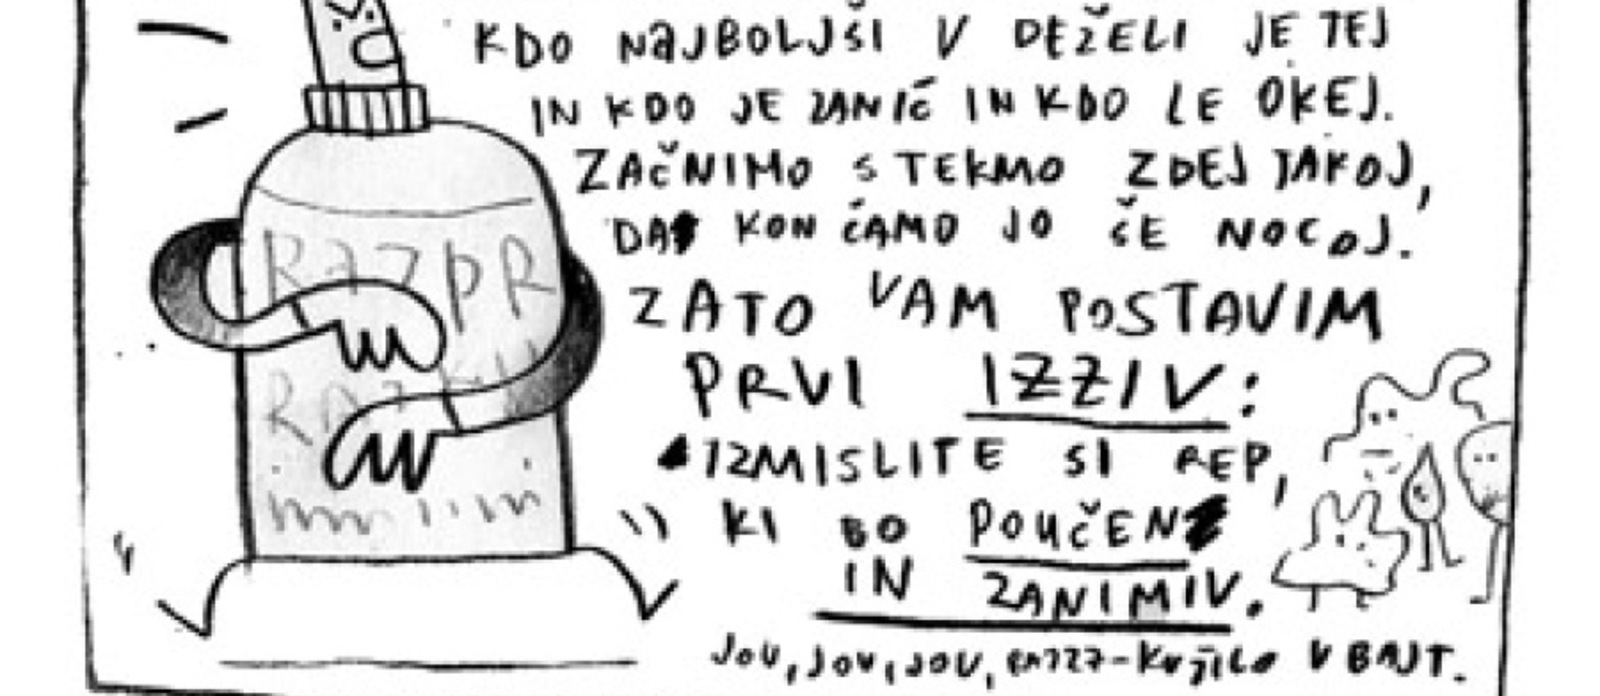 KDO NAJBOLJŠI V DEŽELI JE TEJ
IN KDO JE ZANIČ IN KDO LE OKEJ.
ZAČNIMO S TEKMO ZDEJ TAKOJ,
DA KONČAMO JO ČE NOCOJ.
ZATO VAM POSTAVIM
PRVI IZZIV:
IZMISLITE SI REP,
KI BO POUČEN
IN ZANIMIV.
JOU, JOU, JOU, V BAJT.
RAZPR